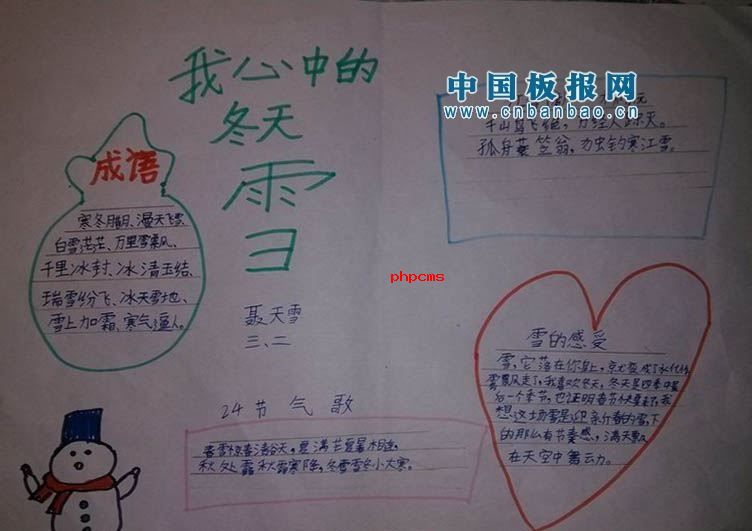 我心中的
冬天
雪
中国板报网
www.cnbanbao.cn
千山鸟飞绝，万径人踪灭。
孤舟蓑笠翁，独钓寒江雪。
成语
寒冬腊月、漫天飞雪
白雪茫茫、万里雪飘、
千里冰封、冰清玉结、
瑞雪纷飞、冰天雪地、
雪上加霜、寒气逼人。
phpcms
聂天雪
三、二
雪的感受
雪，它落在你身上，就变成了水化作
雪飘风走了，我喜欢冬天，冬天是四季中最
后一个季节，也证明春节快要来了，我
想这场雪是迎新春的雪，下
的那么有节奏感，满天飘
在天空中舞动。
24节气歌
春雪惊春清谷天，夏满芒夏暑相连，
秋处露秋霜寒降，冬雪雪冬小大寒。